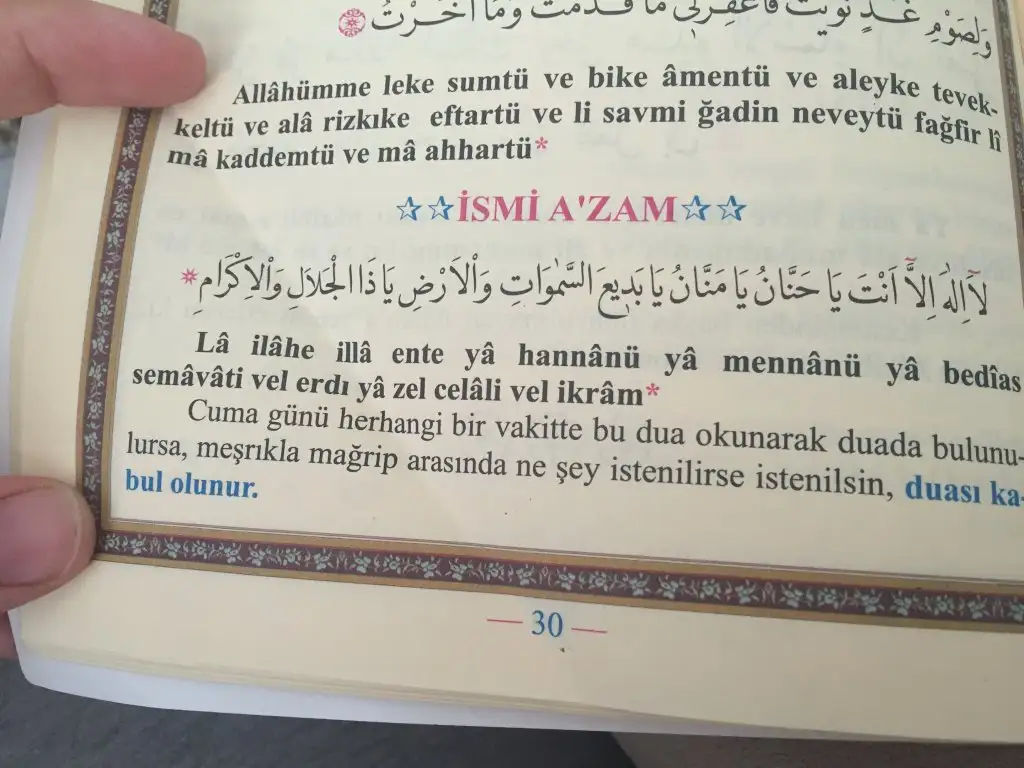 وَلِصَوْمِ غَدٍ نَوَيْتُ فَاغْفِرْلِي مَا قَدَّمْتُ وَمَا أَخَّرْتُ
Allâhümme leke sumtü ve bike âmentü ve aleyke tevek-
keltü ve alâ rizkıke eftartü ve li savmi ğadin neveytü fağfir lî
mâ kaddemtü ve mâ ahhartü*
☆☆İSMİ A'ZAM☆☆
لَآ اِلٰهَ اِلَّآ اَنْتَ يَا حَنَّانُ يَا مَنَّانُ يَا بَدِيعَ السَّمٰوَاتِ وَالْاَرْضِ يَا ذَا الْجَلَالِ وَالْاِكْرَامِ*
Lâ ilâhe illâ ente yâ hannânü yâ mennânü yâ bedîas
semâvâti vel erdı yâ zel celâli vel ikrâm*
Cuma günü herhangi bir vakitte bu dua okunarak duada bulunu-
lursa, meşrıkla mağrip arasında ne şey istenilirse istenilsin, duası ka-
bul olunur.
— 30 —